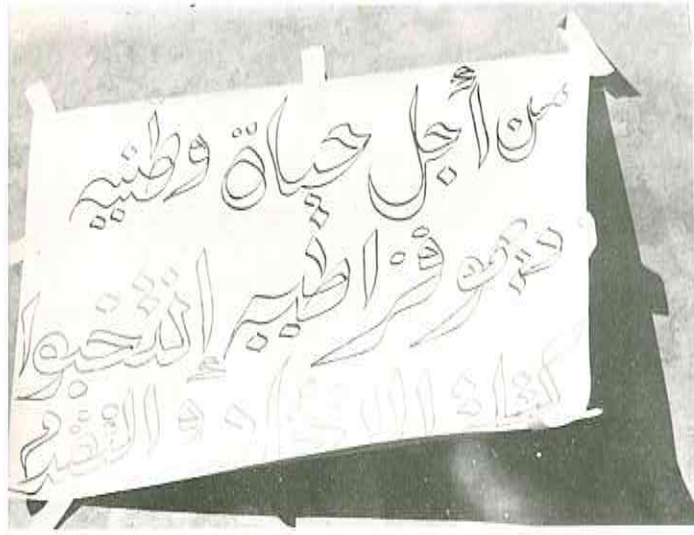 من أجل حياة وطنيه
ديموقراطيه إنتخبوا
كتلة الاتحاد و التقدم